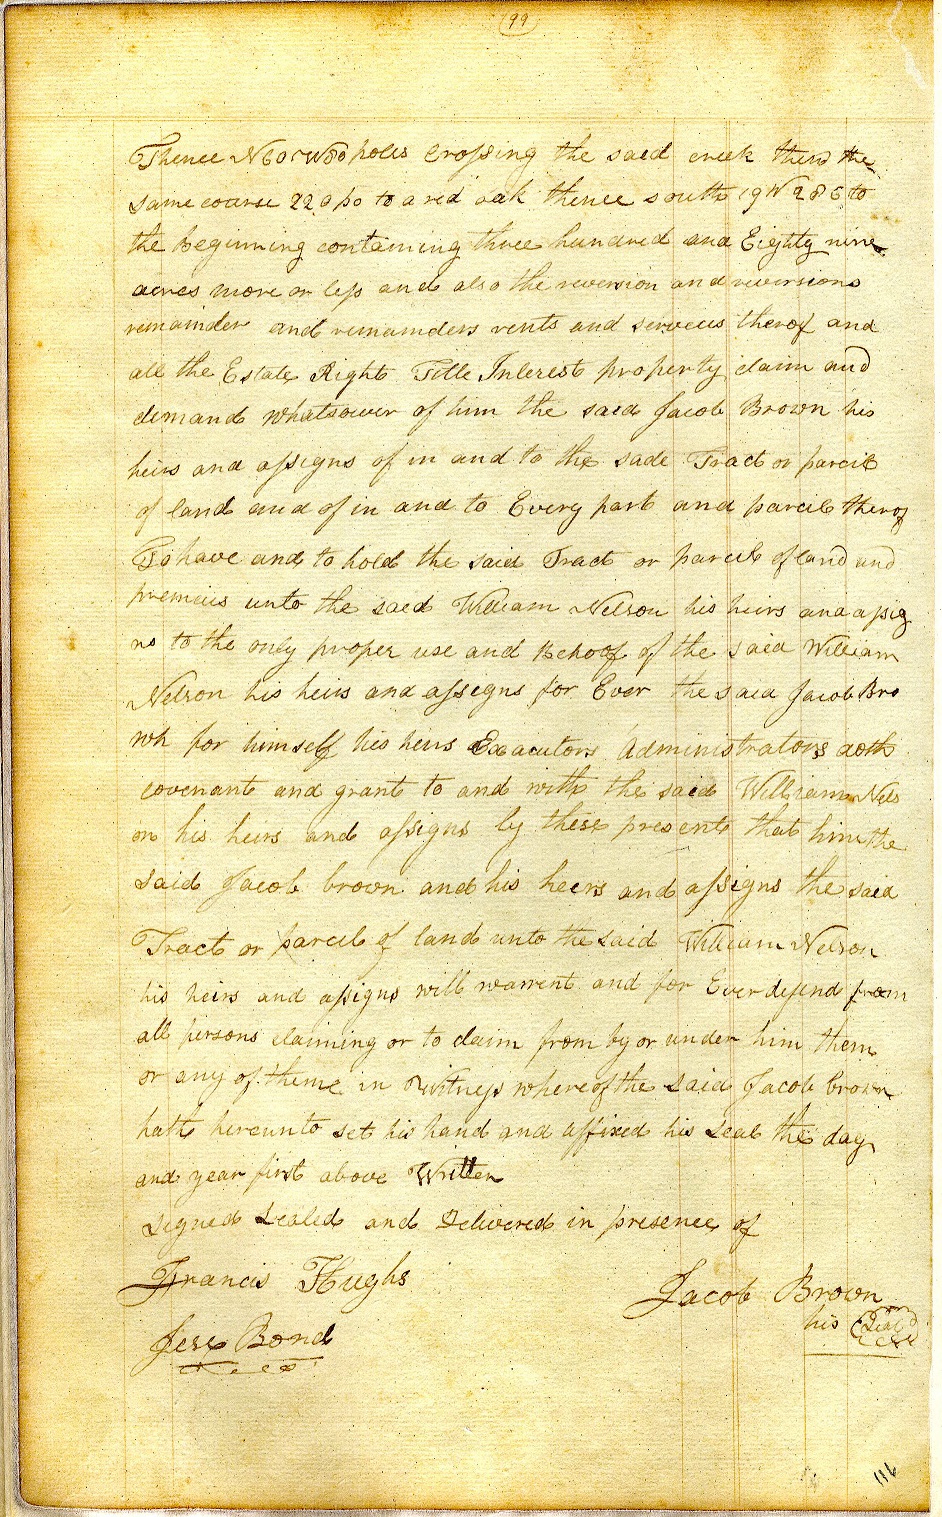 99
Thence N60 W80 poles Crossing the said creek then the
same coarse 220 po to a red oak thence south 19 W 286 to
the beginning containing three hundred and Eighty nine
acres more or less and also the reversion and reversions
remainder and remainders rents and serveces therof and
all the Estate Right Title Interest property claim and
demand whatsower of him the said Jacob Brown his
heirs and assigns of in and to the sade Tract or parcil
of land and of in and to Every part and parcil therof
To have and to hold the said Tract or parcil of land and
premeis unto the saed William Nelson his heirs and assig
ns to the only proper use and Behoof of the said William
Nelson his heirs and assegns for Ever the said Jacob Bro
wn for himself his heirs Exacutors Administrators doth
covenant and grant to and with the said William Nels
on his heirs and assigns by these presents that him the
said Jacob brown and his heers and assigns the said
Tract or parcil of land unto the said William Nelson
his heirs and assigns will warrent and for Ever defend from
all persons claiming or to claim from by or under him them
or any of theme in Witness where of the said Jacob brown
hath hereunto set his hand and affixed his seal the day
and year first above Written
Segned Sealed and Delivered in presence of
Francis Hughs
Jacob Brown
his Seal
Jese Bond
116